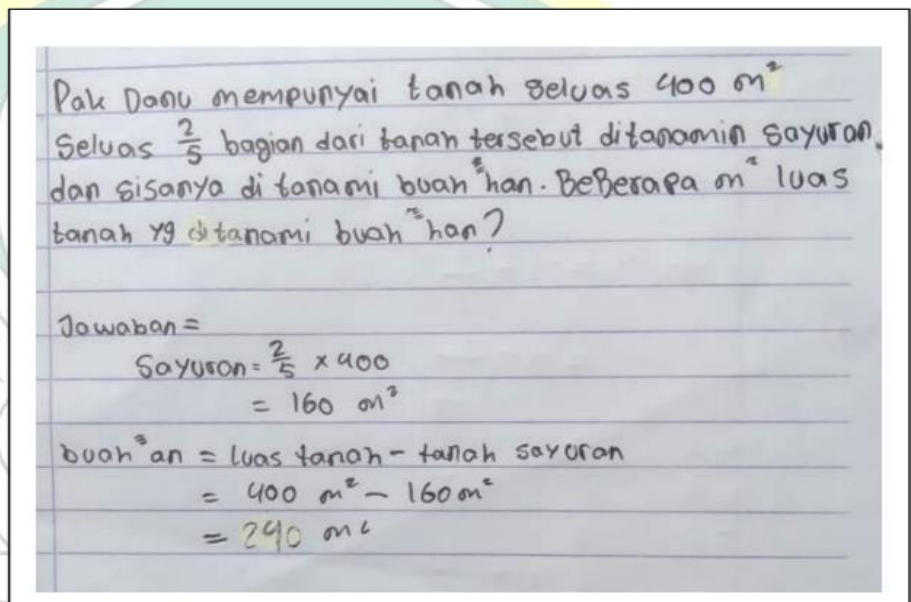 Pak Danu mempunyai tanah seluas 400 m²
Seluas 2/5 bagian dari tanah tersebut ditanamin Sayuran.
dan sisanya di tanami buah²han. BeBerapa m² luas
tanah yg ditanami buah²han?
Jawaban =
Sayuran = 2/5 x 400
= 160 m²
buah²an = luas tanah - tanah sayuran
= 400 m² - 160 m²
= 240 m²